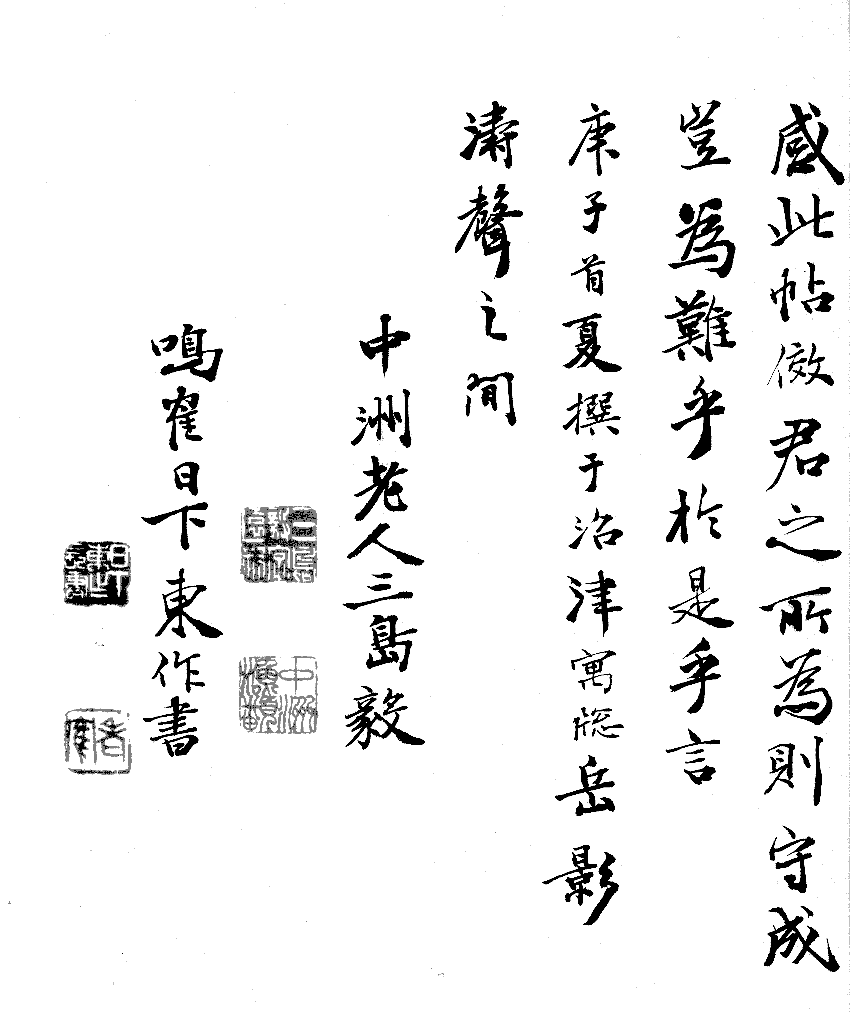 感此帖傚君之所為則守成
豈為難乎於是乎言
庚子首夏撰于沼津寓窓岳影
濤聲之間
中洲老人三島毅
鳴隺日下東作書
中洲